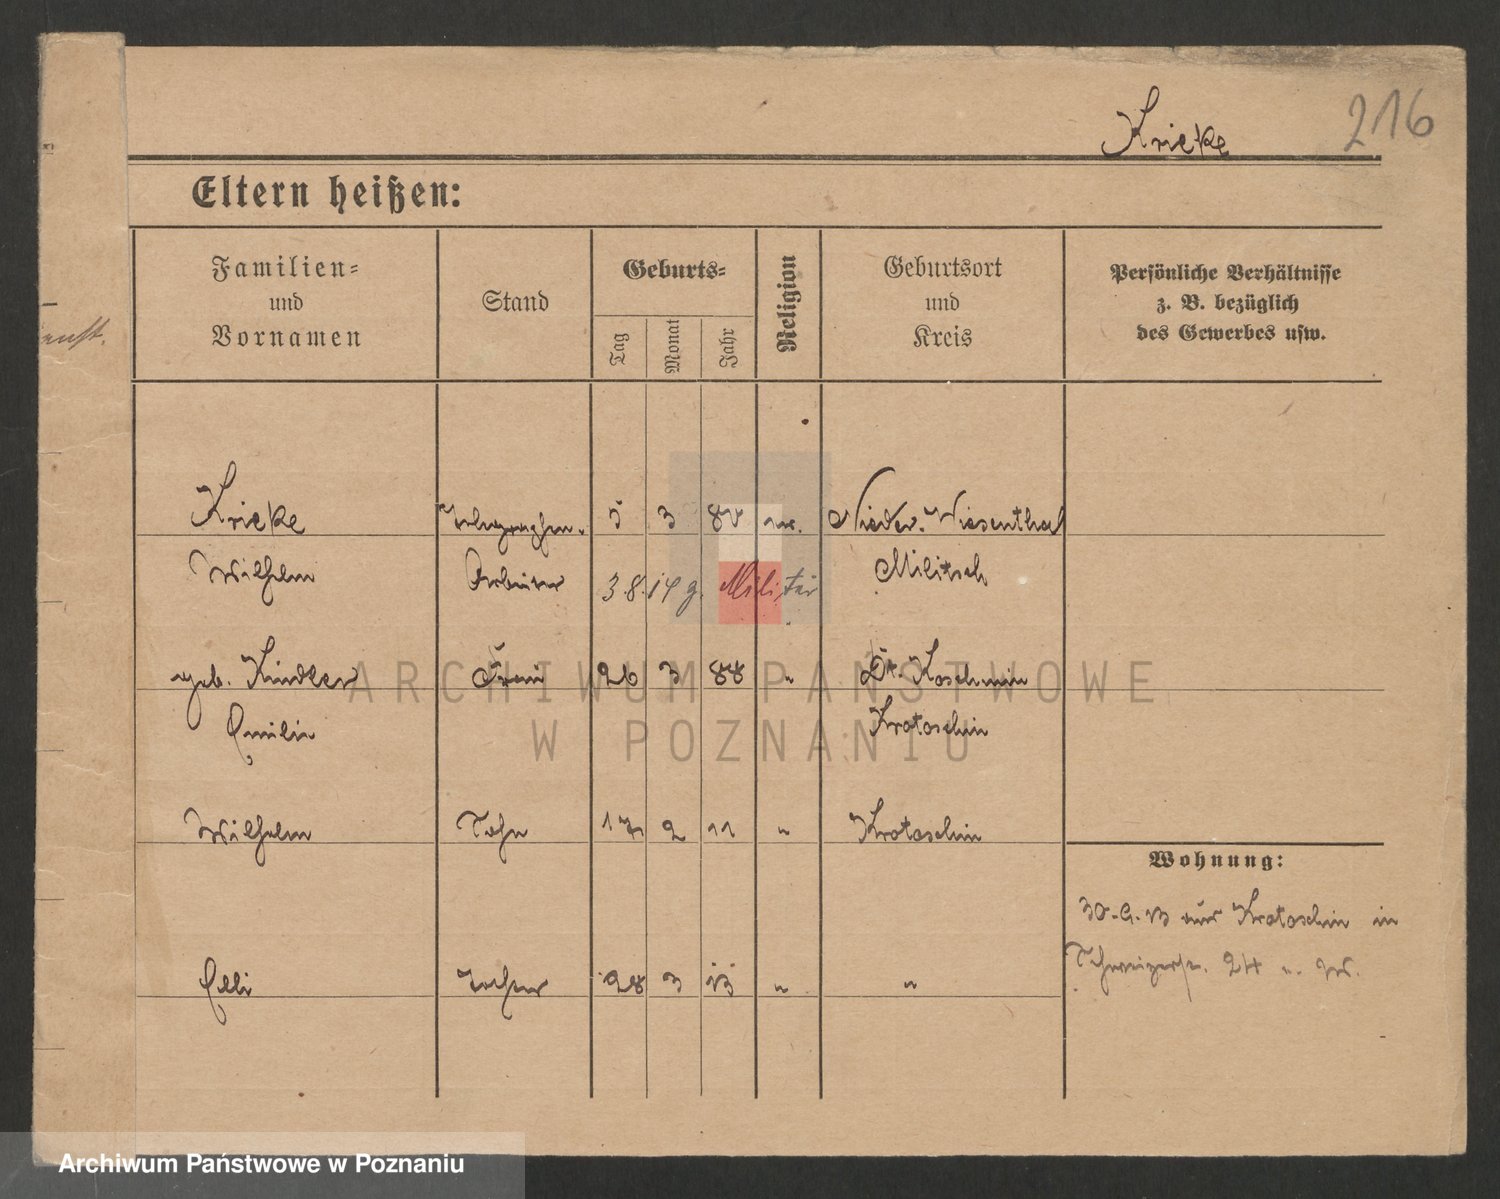 Krieke 216
Eltern heißen:
Familien=
und
Vornamen
Stand
Geburts=
Tag
Monat
Jahr
Religion
Geburtsort
und
Kreis
Persönliche Verhältnisse
z. B. bezüglich
des Gewerbes usw.
Krieke Telegraphen- 5 3 80 ev. Nieder-Wiesenthal
Wilhelm Arbeiter 3.8.14 z. Militär Militsch
geb. Kindler Frau 26 3 88 " Dt. Koschmin
Emilie Krotoschin
Wilhelm Sohn 17 2 11 " Krotoschin
Wohnung:
30.9.13 aus Krotoschin in
24
Elli Tochter 28 3 13 " "
ARCHIWUM PAŃSTWOWE
W POZNANIU
Archiwum Państwowe w Poznaniu